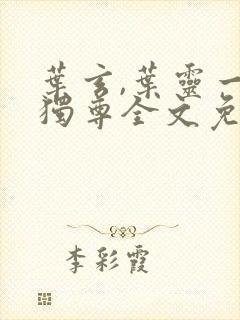 葉玄,葉靈一
獨尊全文免
李彩霞